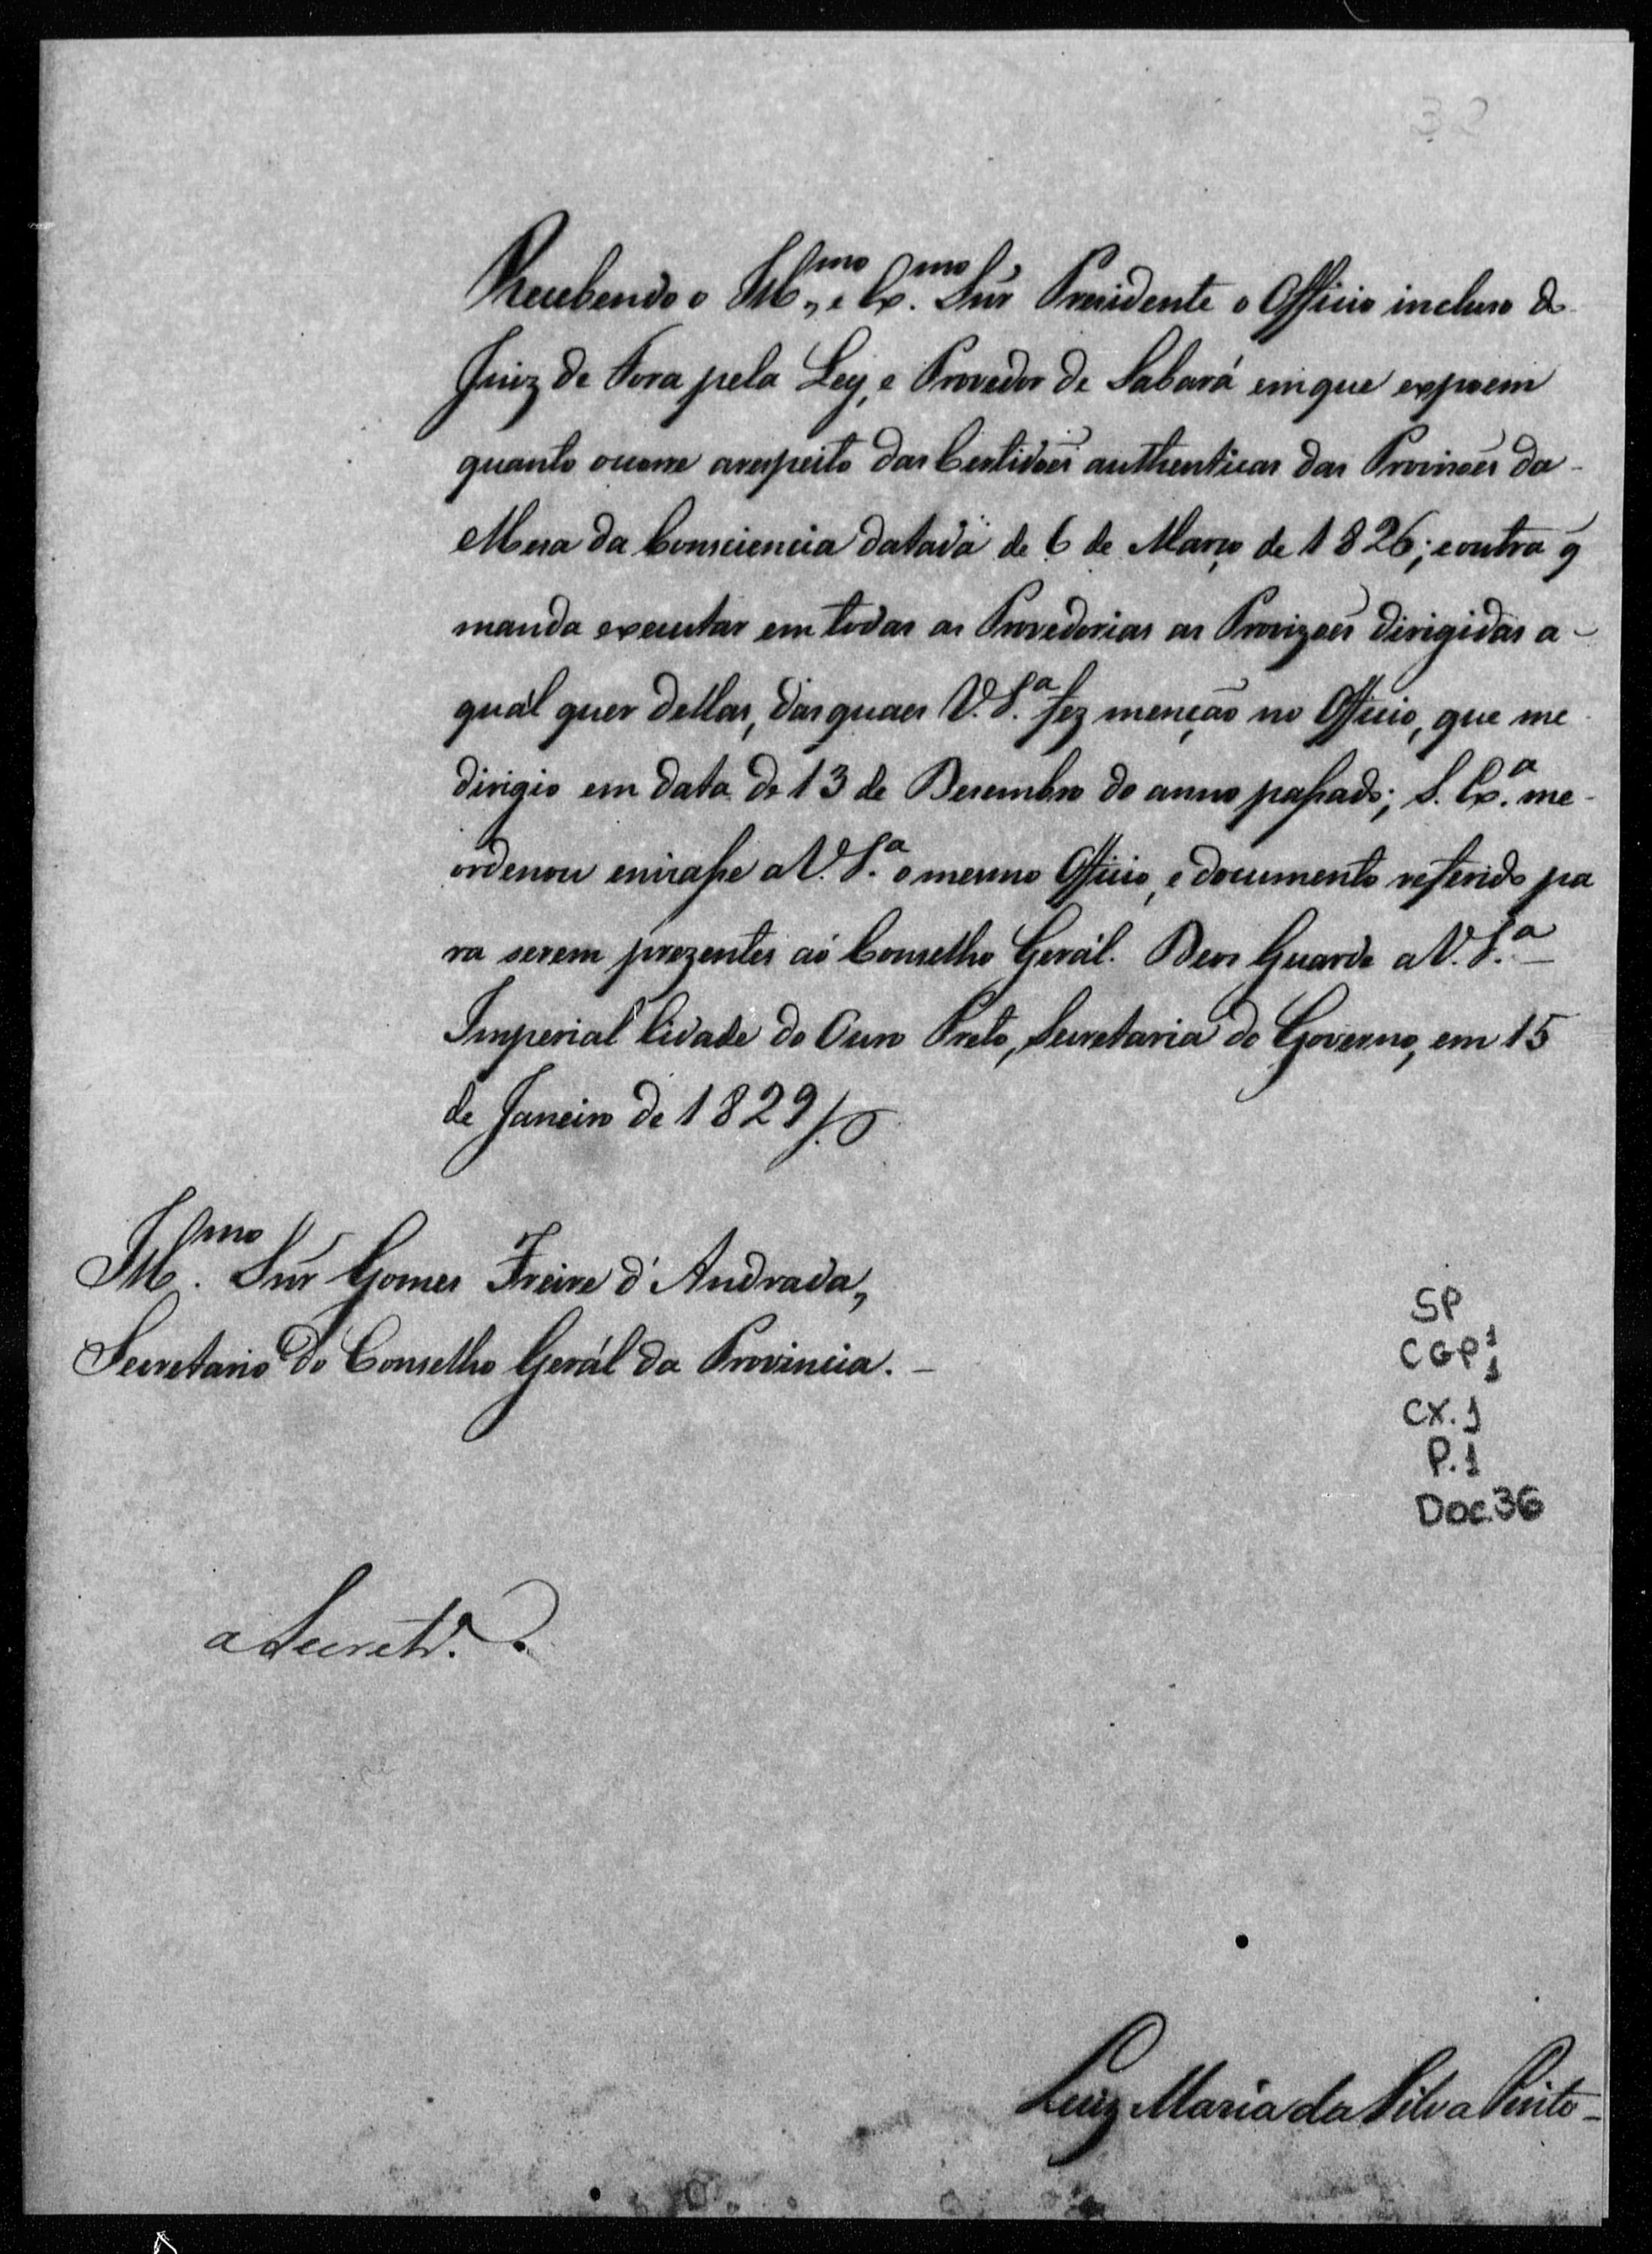 32
Recebendo o Ill.mo, e Ex.mo Snr Presidente o Officio incluso do
Juiz de Fora pela Ley, e Provedor de Sabará em que expoem
quanto ocorre arespeito das Certidoẽs authenticas das Provisoẽs da
Mesa da Consciencia datada de 6 de Março de 1826; eoutra q̃
manda executar em todas as Provedorias as Provizoẽs dirigidas a
qual quer dellas, das quaes V. S.a fez menção no Officio, que me
dirigio em data de 13 de Desembro do anno passado; S. Ex.a me
ordenou enviasse a V. S.a o mesmo Officio, e documento referido pa
ra serem prezentes aó Conselho Gerál. Deos Guarde a V. S.a
Imperial Cidade do Ouro Preto, Secretaria do Governo, em 15
de Janeiro de 1829
Ill.mo Snr Gomes Freire d'Andrada,
Secretario do Conselho Gerál da Provincia.
SP
CGP 1
1
CX. 1
P. 1
Doc. 36
a Secret.a
Luiz Maria da Silva Pinto